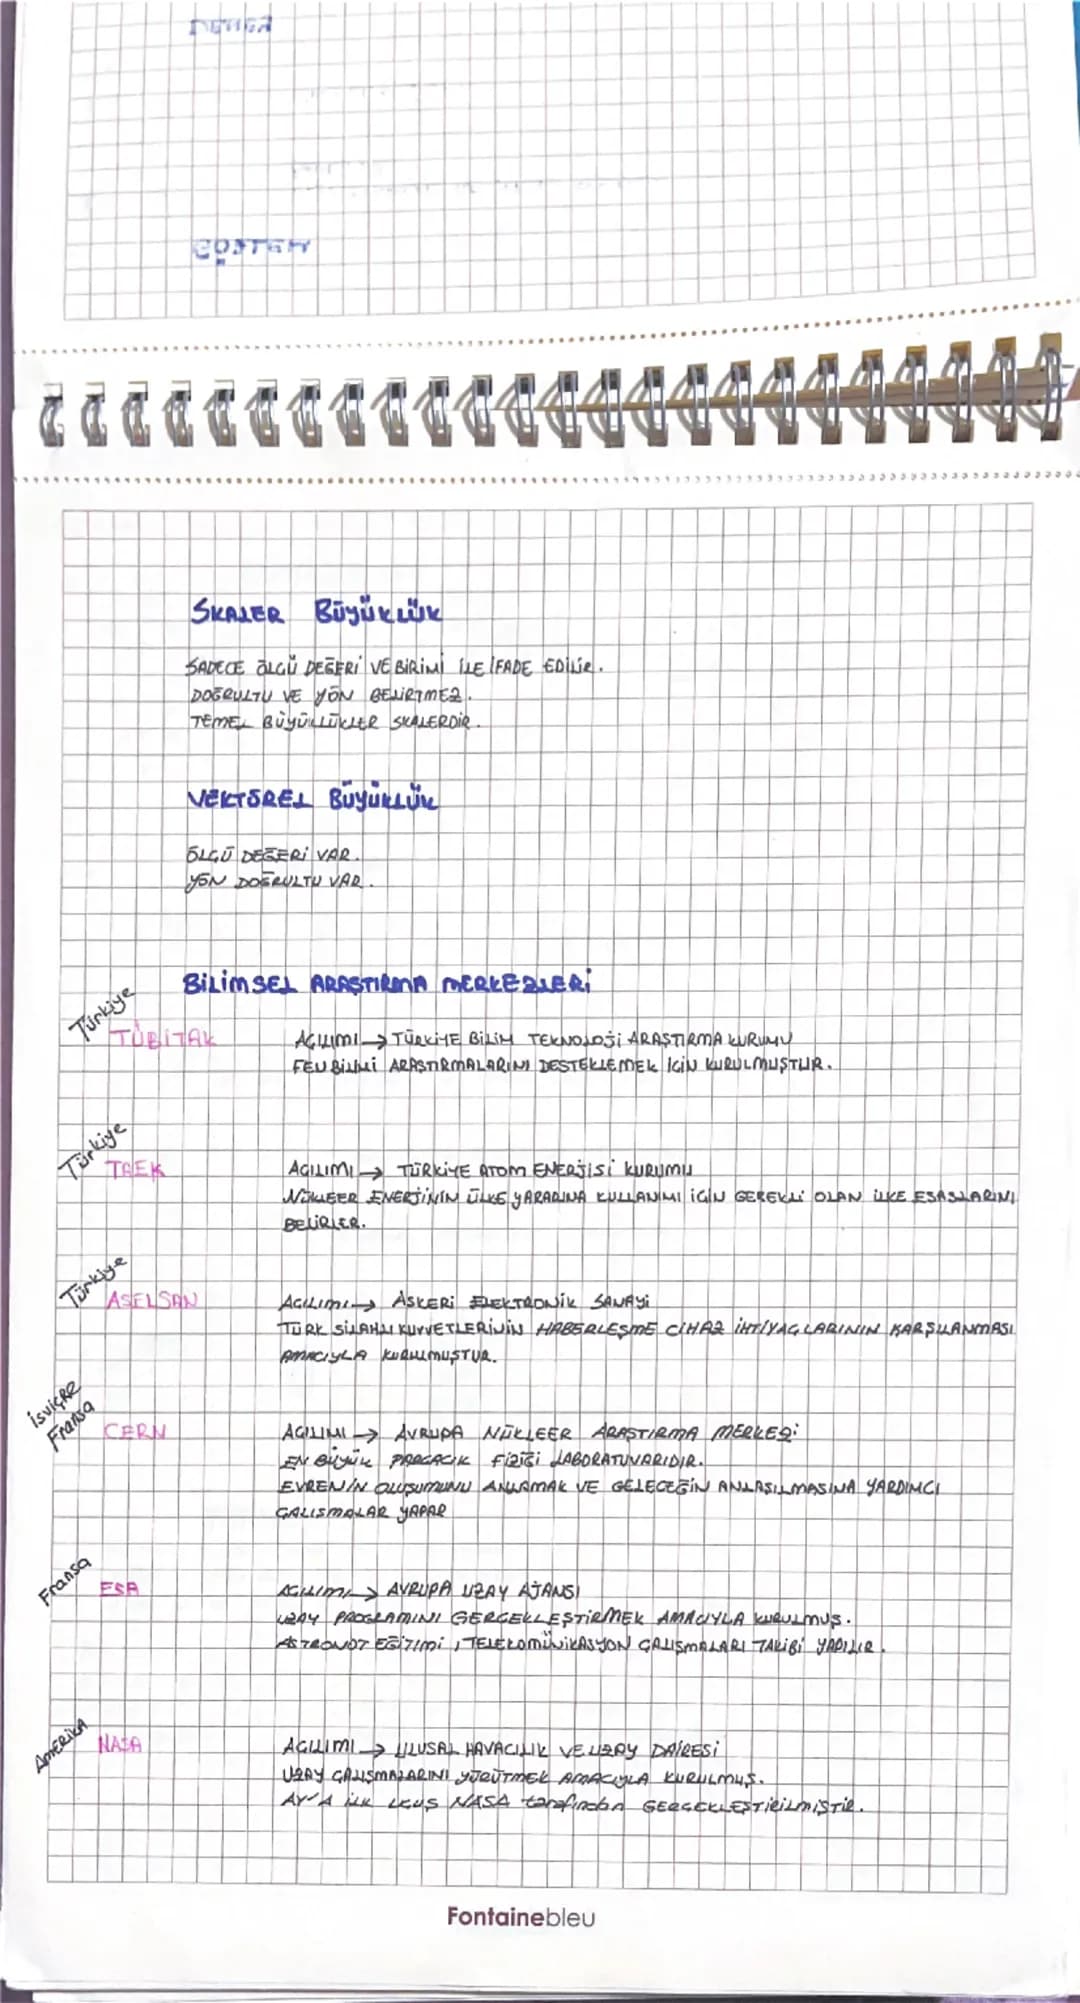 SKALER BÜYÜKLÜK
SADECE ÖLÇÜ DEĞERİ VE BİRİMİ İLE İFADE EDİLİR.
DOĞRULTU VE YÖN BELİRTMEZ.
TEMEL BÜYÜKLÜKLER SKALERDİR.
VEKTÖREL BÜYÜKLÜK
ÖLÇÜ DEĞERİ VAR.
YÖN DOĞRULTU VAR.
BİLİMSEL ARAŞTIRMA MERKEZLERİ
Türkiye
TÜBİTAK
AÇILIMI → TÜRKİYE BİLİM TEKNOLOJİ ARAŞTIRMA KURUMU
FEN BİLİMİ ARAŞTIRMALARINI DESTEKLEMEK İÇİN KURULMUŞTUR.
Türkiye
TAEK
AÇILIMI → TÜRKİYE ATOM ENERJİSİ KURUMU
NÜKLEER ENERJİNİN ÜLKE YARARINA KULLANIMI İÇİN GEREKLİ OLAN İLKE ESASLARINI
BELİRLER.
Türkiye
ASELSAN
AÇILIMI → ASKERİ ELEKTRONİK SANAYİ
TÜRK SİLAHLI KUVVETLERİNİN HABERLEŞME CİHAZ İHTİYAÇLARININ KARŞILANMASI
AMACIYLA KURULMUŞTUR.
İSVİÇRE
Fransa
CERN
AÇILIMI → AVRUPA NÜKLEER ARAŞTIRMA MERKEZİ
EN BÜYÜK PARÇACIK FİZİĞİ LABORATUVARIDIR.
EVRENİN OLUŞUMUNU ANLAMAK VE GELECEĞİN ANLAŞILMASINA YARDIMCI
ÇALIŞMALAR YAPAR
Fransa
ESA
AÇILIMI → AVRUPA UZAY AJANSI
UZAY PROGRAMINI GERÇEKLEŞTİRMEK AMACIYLA KURULMUŞ.
ASTRONOT EĞİTİMİ, TELEKOMÜNİKASYON ÇALIŞMALARI TAKİBİ YAPILIR.
AMERİKA
NASA
AÇILIMI → ULUSAL HAVACILIK VE UZAY DAİRESİ
UZAY ÇALIŞMALARINI YÜRÜTMEK AMACIYLA KURULMUŞ.
AY'A İLK UÇUŞ NASA tarafından GERÇEKLEŞTİRİLMİŞTİR.
Fontainebleu